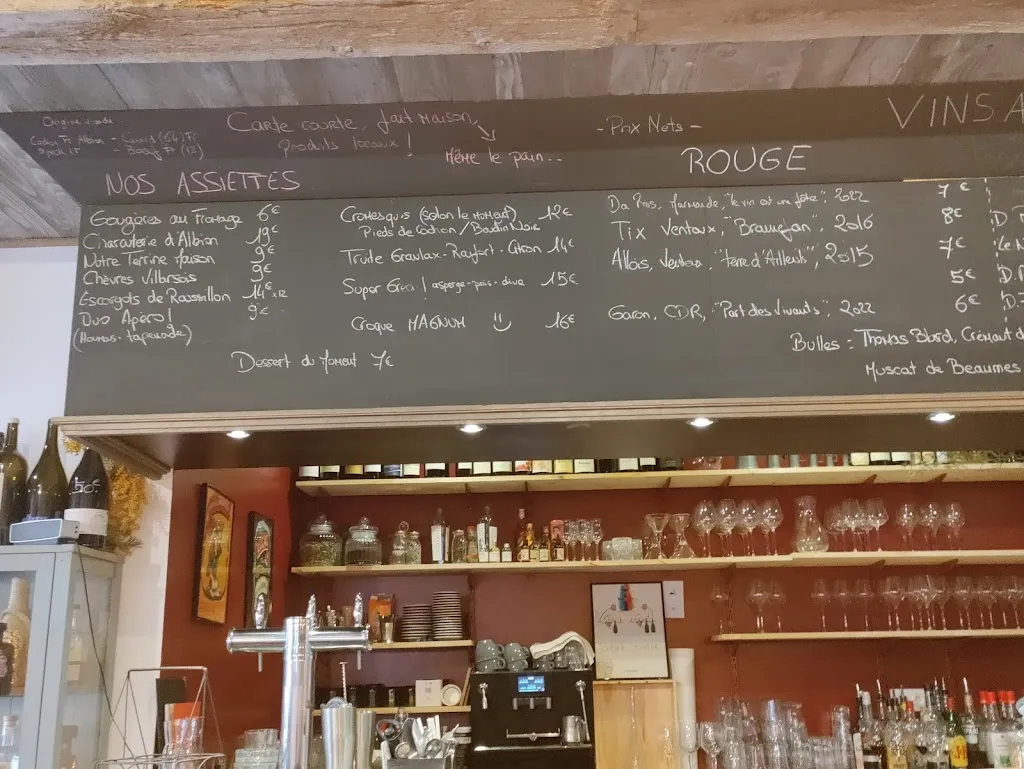 Carte courte, fait maison,
produits locaux !
Même le pain...
- Prix Nets -
VINS A
NOS ASSIETTES
Gougères au Fromage 6€
Charcuterie d'Albion 19€
Notre Terrine Maison 9€
Chèvres Villarsois 9€
Escargots de Roussillon 14€ x12
Duo Apéro! 9€
(Houmos - tapenade)
Cromesquis (Selon le moment) 12€
Pieds de Cochon / Boudin Noir
Truite Gravlax - Raifort - Citron 14€
Super ! asperge - pois - 15€
Croque MAGNUM 16€
Dessert du Moment 7€
ROUGE
Da Ros, "le vin est une fête", 2022 7€
Tix Ventoux, 2016 8€
Allois, Ventoux, "Terre d'Ailleurs", 2015 7€
5€
Garon, CDR, "Part des Vivants", 2022 6€
Bulles = Thomas Crémant d
Muscat de Beaumes
50€